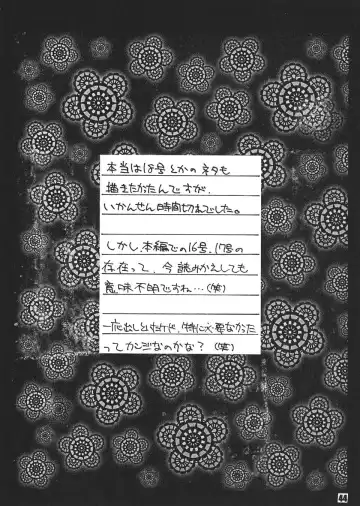 本当は18号とかのネタも
描きたかたんですが、
いかんせん時間切れでした。
しかし、本編での16号、17号の
存在って、今読みかえしても
意味不明ですね…(笑)
一応出しとたけど、特に必要なかた
ってカンジなのかな？(笑)
44